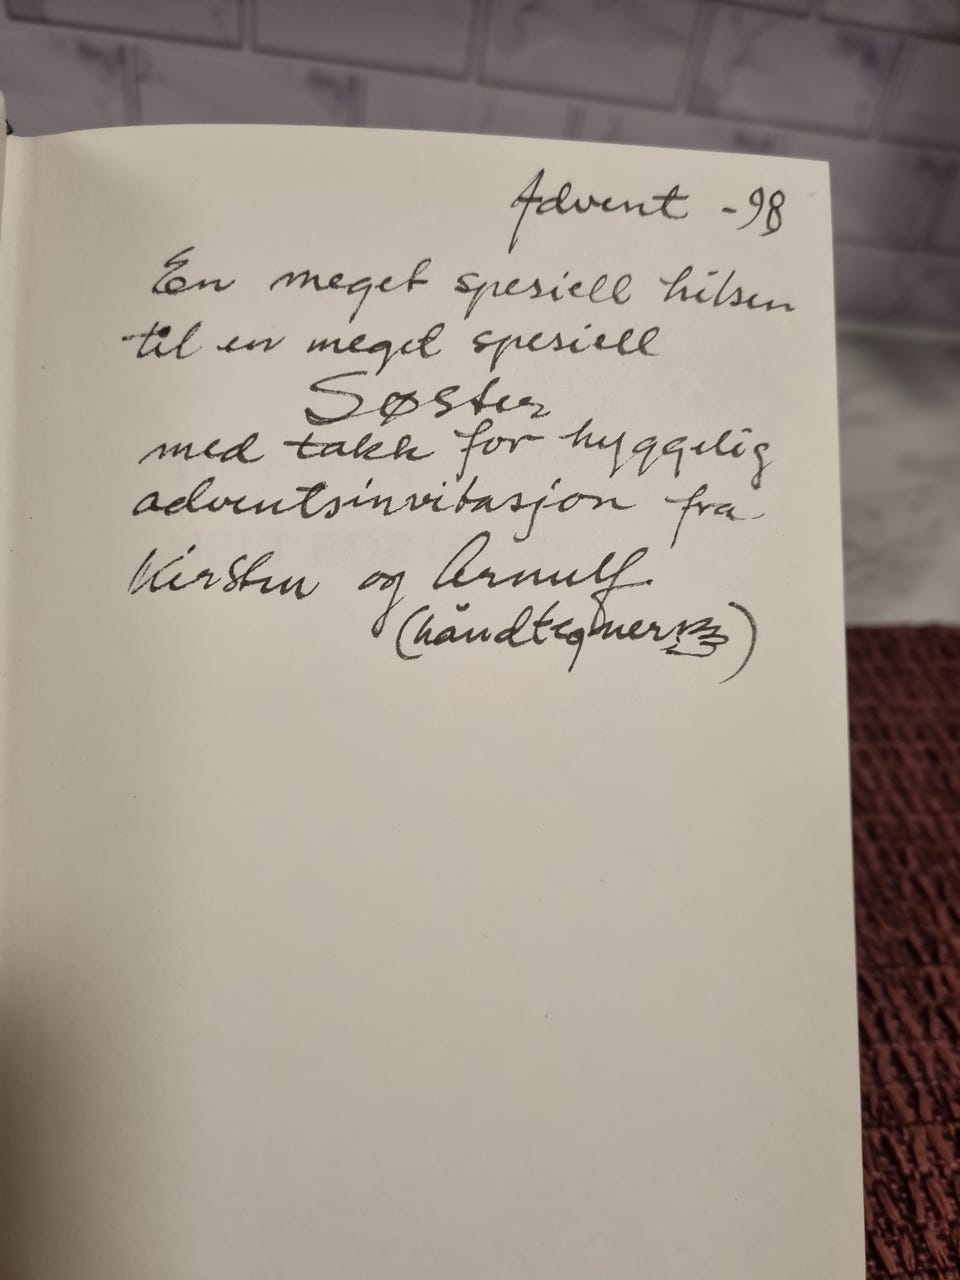 Advent -98
En meget spesiell hilsen
til en meget spesiell
Søster
med takk for hyggelig
adventsinvitasjon fra
Kirsten og Arnulf
(håndtegner)